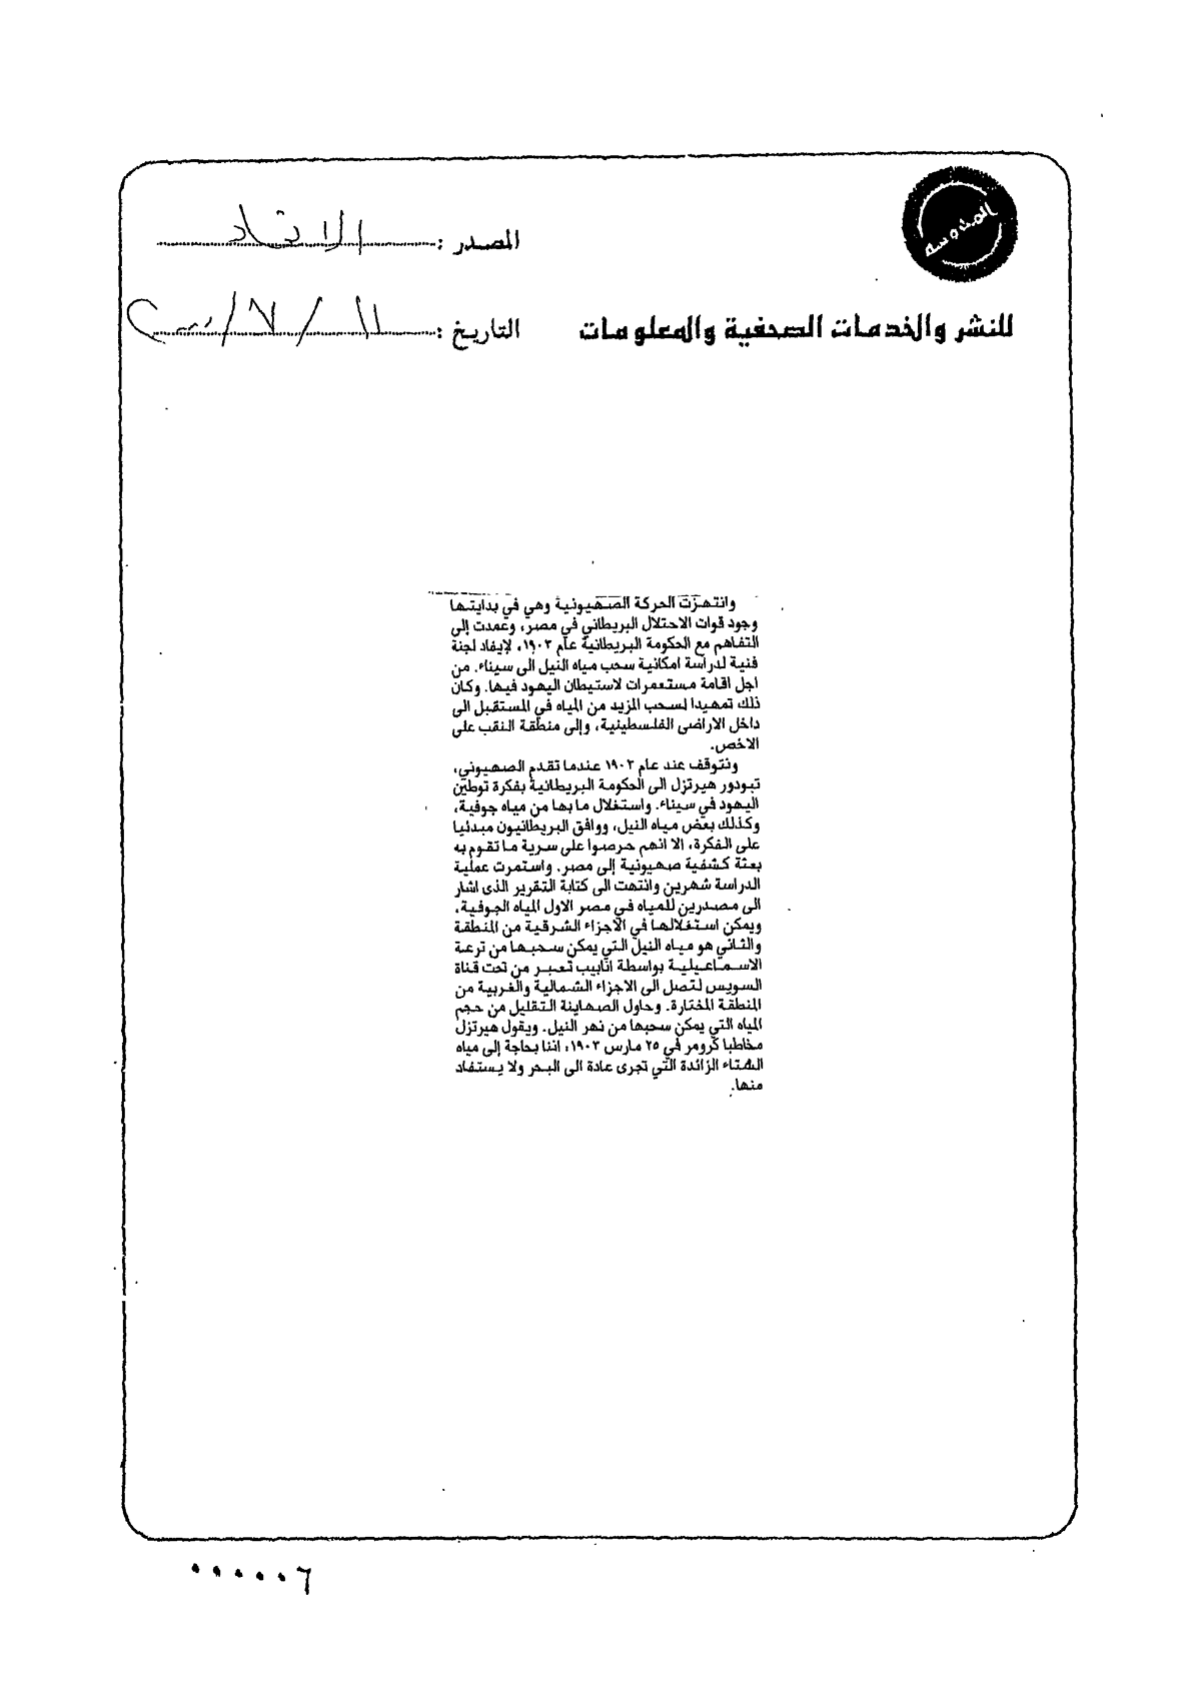 المحروسة
المصدر : الاتحاد
للنشر والخدمات الصحفية والمعلومات
التاريخ : ١١ / ٧ /
وانتهزت الحركة الصهيونية وهي في بدايتها
وجود قوات الاحتلال البريطاني في مصر، وعمدت إلى
التفاهم مع الحكومة البريطانية عام ١٩٠٣، لإيفاد لجنة
فنية لدراسة امكانية سحب مياه النيل الى سيناء. من
اجل اقامة مستعمرات لاستيطان اليهود فيها. وكان
ذلك تمهيدا لسحب المزيد من المياه في المستقبل الى
داخل الاراضى الفلسطينية، وإلى منطقة النقب على
الاخص.
ونتوقف عند عام ١٩٠٣ عندما تقدم الصهيوني،
تيودور هيرتزل الى الحكومة البريطانية بفكرة توطين
اليهود في سيناء. واستغلال ما بها من مياه جوفية،
وكذلك بعض مياه النيل، ووافق البريطانيون مبدئيا
على الفكرة، الا انهم حرصوا على سرية ما تقوم به
بعثة كشفية صهيونية إلى مصر. واستمرت عملية
الدراسة شهرين وانتهت الى كتابة التقرير الذى اشار
الى مصدرين للمياه في مصر الاول المياه الجوفية،
ويمكن استغلالها في الاجزاء الشرقية من المنطقة
والثاني هو مياه النيل التي يمكن سحبها من ترعة
الاسماعيلية بواسطة انابيب تعبر من تحت قناة
السويس لتصل الى الاجزاء الشمالية والغربية من
المنطقة المختارة. وحاول الصهاينة التقليل من حجم
المياه التي يمكن سحبها من نهر النيل. ويقول هيرتزل
مخاطبا كرومر في ٢٥ مارس ١٩٠٣: اننا بحاجة إلى مياه
الشتاء الزائدة التي تجرى عادة الى البحر ولا يستفاد
منها.
٠٠٠٠٠٦